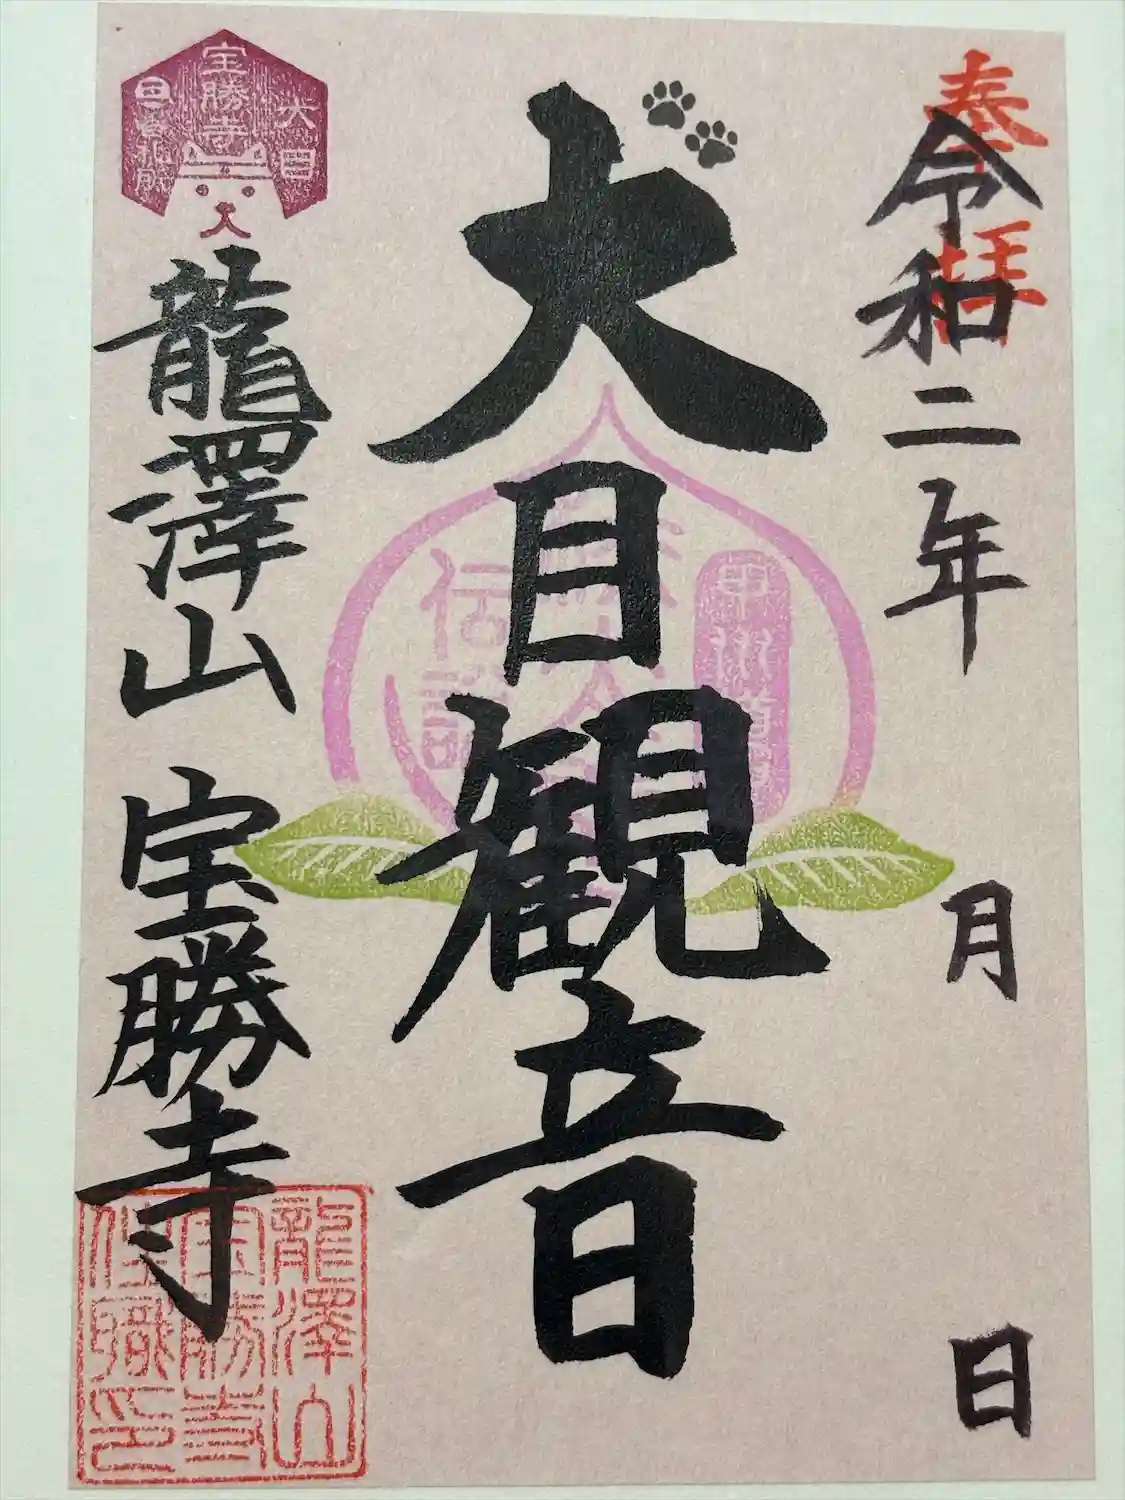 奉拝
令和二年 月 日
犬目観音
甲州道
伝説
龍澤山 宝勝寺
宝勝寺
犬目
龍澤山
宝勝寺
住職之印